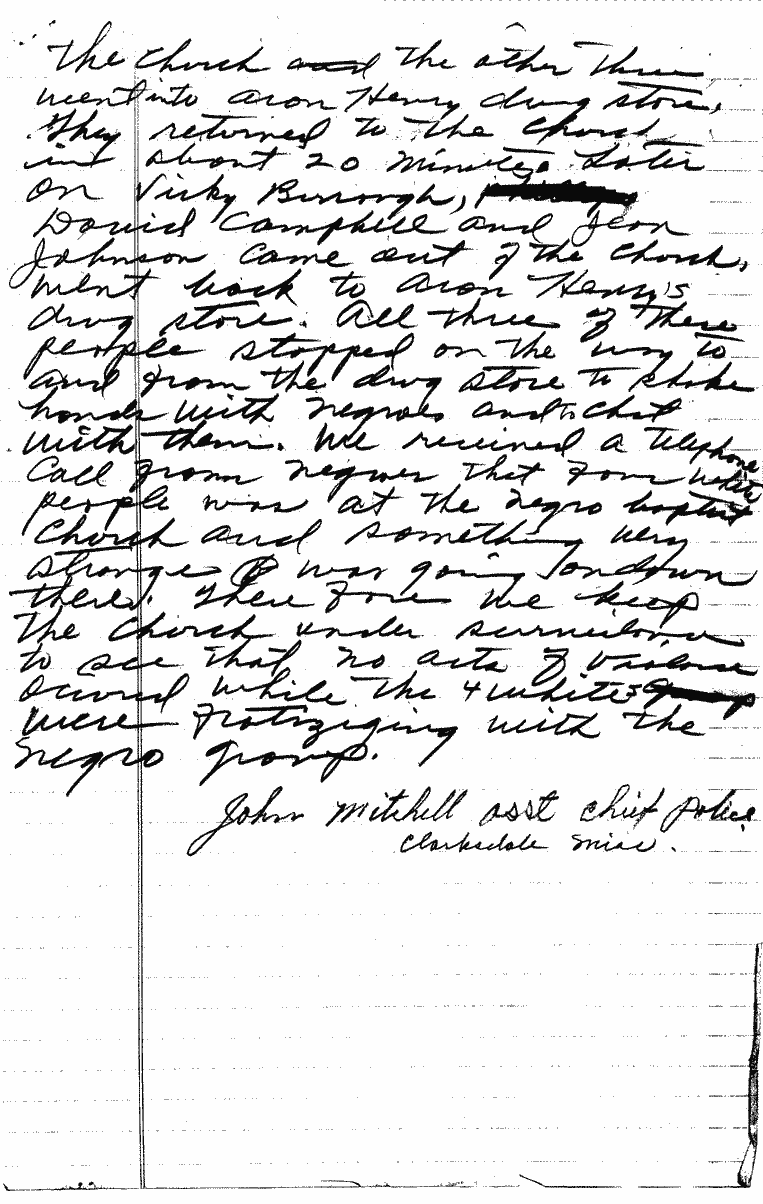 The Church and The other Three
went into Aron Henry drug store,
They returned to The Church
in about 20 minutes. Later
on Vicky Burrough,
David Campbell and Jean
Johnson came out of the Church,
went back to Aron Henry's
drug store. All three of These
people stopped on the way to
and from the drug store to shake
hands with negroes and to chat
with them. We received a Telephone
Call from negroes that Four white
people was at the negro baptist
Church and something very
strange was going on down
there. There Fore we keep
The Church under surveilance
to see that no acts of violence
occured while the 4 whites
were Fratiziging with the
negro group.
John Mitchell asst chief police
Clarksdale Miss.